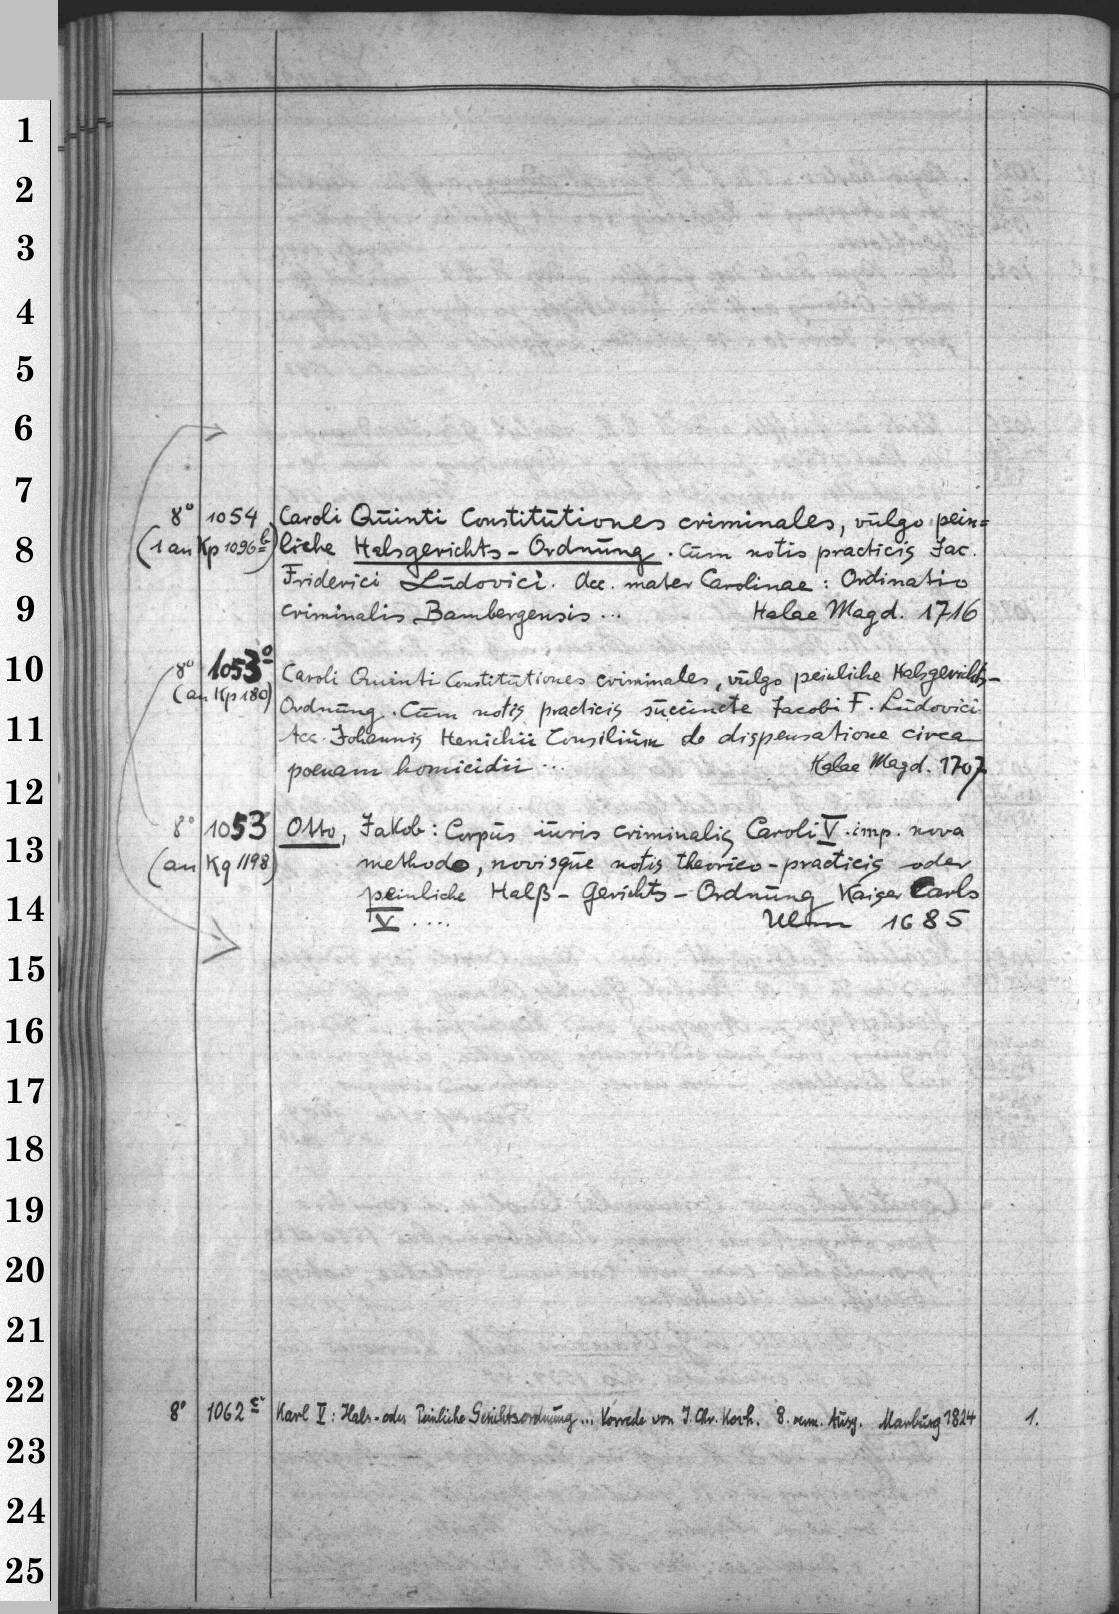 1
2
3
4
5
6
7
8
9
10
11
12
13
14
15
16
17
18
19
20
21
22
23
24
25
8° 1054 Caroli Quinti Constitutiones criminales, vulgo pein=
(1 an Kp 1096 b) liche Halsgerichts-Ordnung. Cum notis practicis Jac.
Friderici Ludovici. Acc. mater Carolinae: Ordinatio
criminalis Bambergensis ... Halae Magd. 1716
8° 1053° Caroli Quinti Constitutiones criminales, vulgo peinliche Halsgerichts-
(an Kp 180) Ordnung. Cum notis practicis succincte Jacobi F. Ludovici
Acc. Johannis Henichii Consilium de dispensatione circa
poenam homicidii ... Halae Magd. 1707
8° 1053 Otto, Jakob: Corpus iuris criminalis Caroli V. imp. nova
(an Kq 1198) methodo, novisque notis theorico-practicis oder
peinliche Halß-Gerichts-Ordnung Kaiser Carls
V .... Ulm 1685
8° 1062 c Karl V: Hals- oder Peinliche Gerichtsordnung ... Vorrede von J. Chr. Koch. 8. verm. Ausg. Marburg 1824 1.